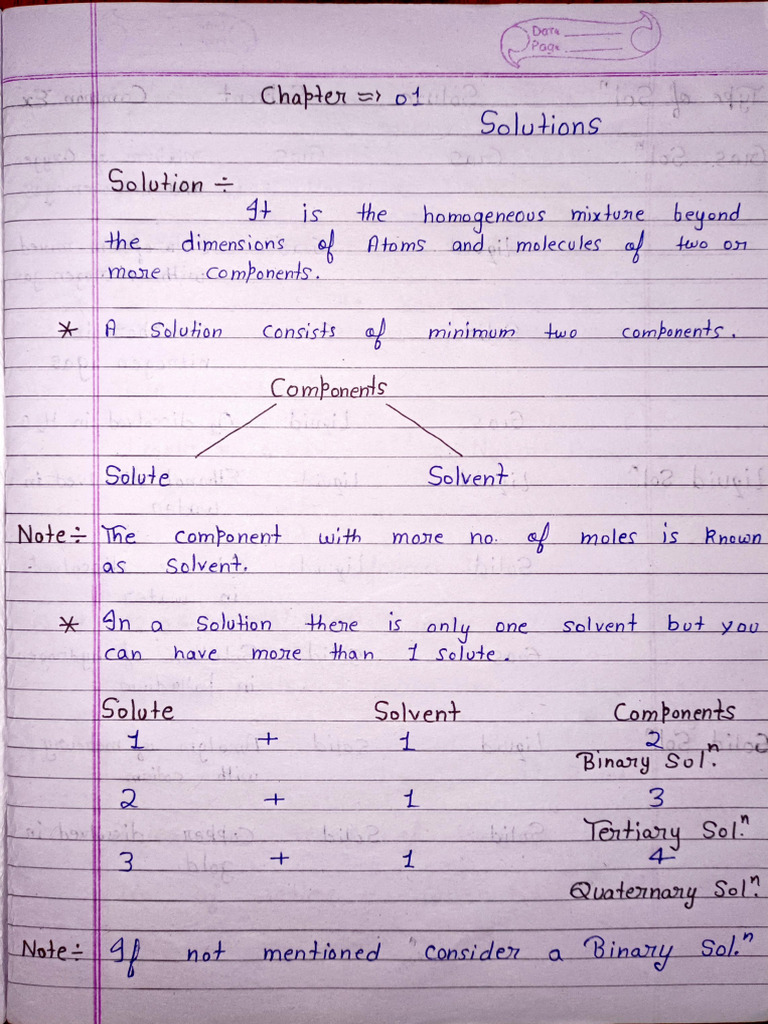 Date
Page
Chapter => 01
Solutions
Solution ÷
It is the homogeneous mixture beyond
the dimensions of Atoms and molecules of two or
more components.
* A Solution consists of minimum two components.
Components
Solute Solvent
Note ÷ The component with more no. of moles is known
as Solvent.
* In a Solution there is only one solvent but you
can have more than 1 solute.
Solute Solvent Components
1 + 1 2
Binary Sol.ⁿ
2 + 1 3
Tertiary Sol.ⁿ
3 + 1 4
Quaternary Sol.ⁿ
Note ÷ If not mentioned consider a Binary Sol.ⁿ